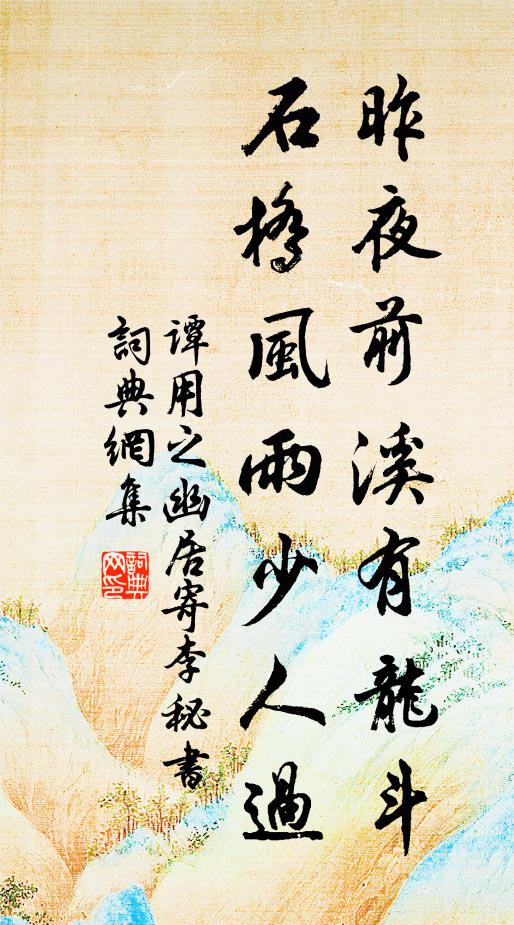 昨夜前溪有龍斗
石橋風雨少人過
譚用之幽居寄李秘書
詞典網集
詞典網印